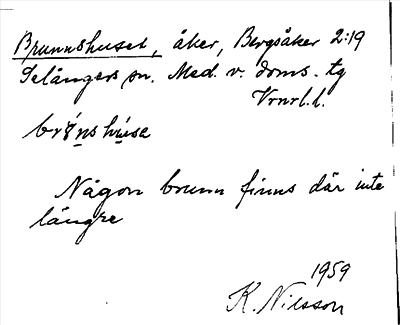 Brunnshuset, åker, Bergsåker 2:19
Selångers sn. Med. v. doms. tg
Vrnrl.l.
brø̀nshùsa
Någon brunn finns där inte
längre
1959
K. Nilsson